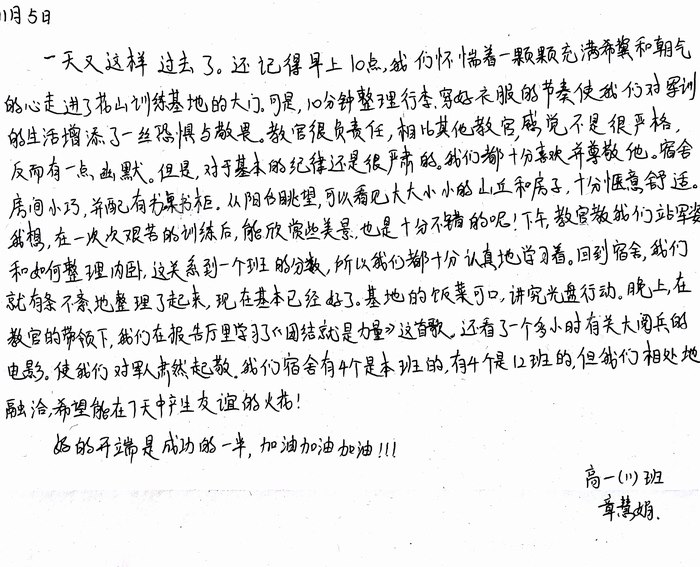 11月5日
一天又这样过去了。还记得早上10点,我们怀揣着一颗颗充满希冀和朝气
的心走进了花山训练基地的大门。可是,10分钟整理行李,穿好衣服的节奏使我们对军训
的生活增添了一丝恐惧与敬畏。教官很负责任,相比其他教官,感觉不是很严格,
反而有一点幽默。但是,对于基本的纪律还是很严肃的。我们都十分喜欢并尊敬他。宿舍
房间小巧,并配有书桌书柜。从阳台眺望,可以看见大大小小的山丘和房子,十分惬意舒适。
我想,在一次次艰苦的训练后,能欣赏些美景,也是十分不错的呢!下午,教官教我们立军姿
和如何整理内卧,这关系到一个班的分数,所以我们都十分认真地学习着。回到宿舍,我们
就有条不紊地整理了起来,现在基本已经好了。基地的饭菜可口,讲究光盘行动。晚上,在
教官的带领下,我们在报告厅里学习了《团结就是力量》这首歌。还看了一个多小时有关大阅兵的
电影。使我们对军人肃然起敬。我们宿舍有4个是本班的,有4个是12班的,但我们相处地
融洽,希望能在7天中产生友谊的火花!
好的开端是成功的一半,加油加油加油!!!
高一(11)班
章慧娟.